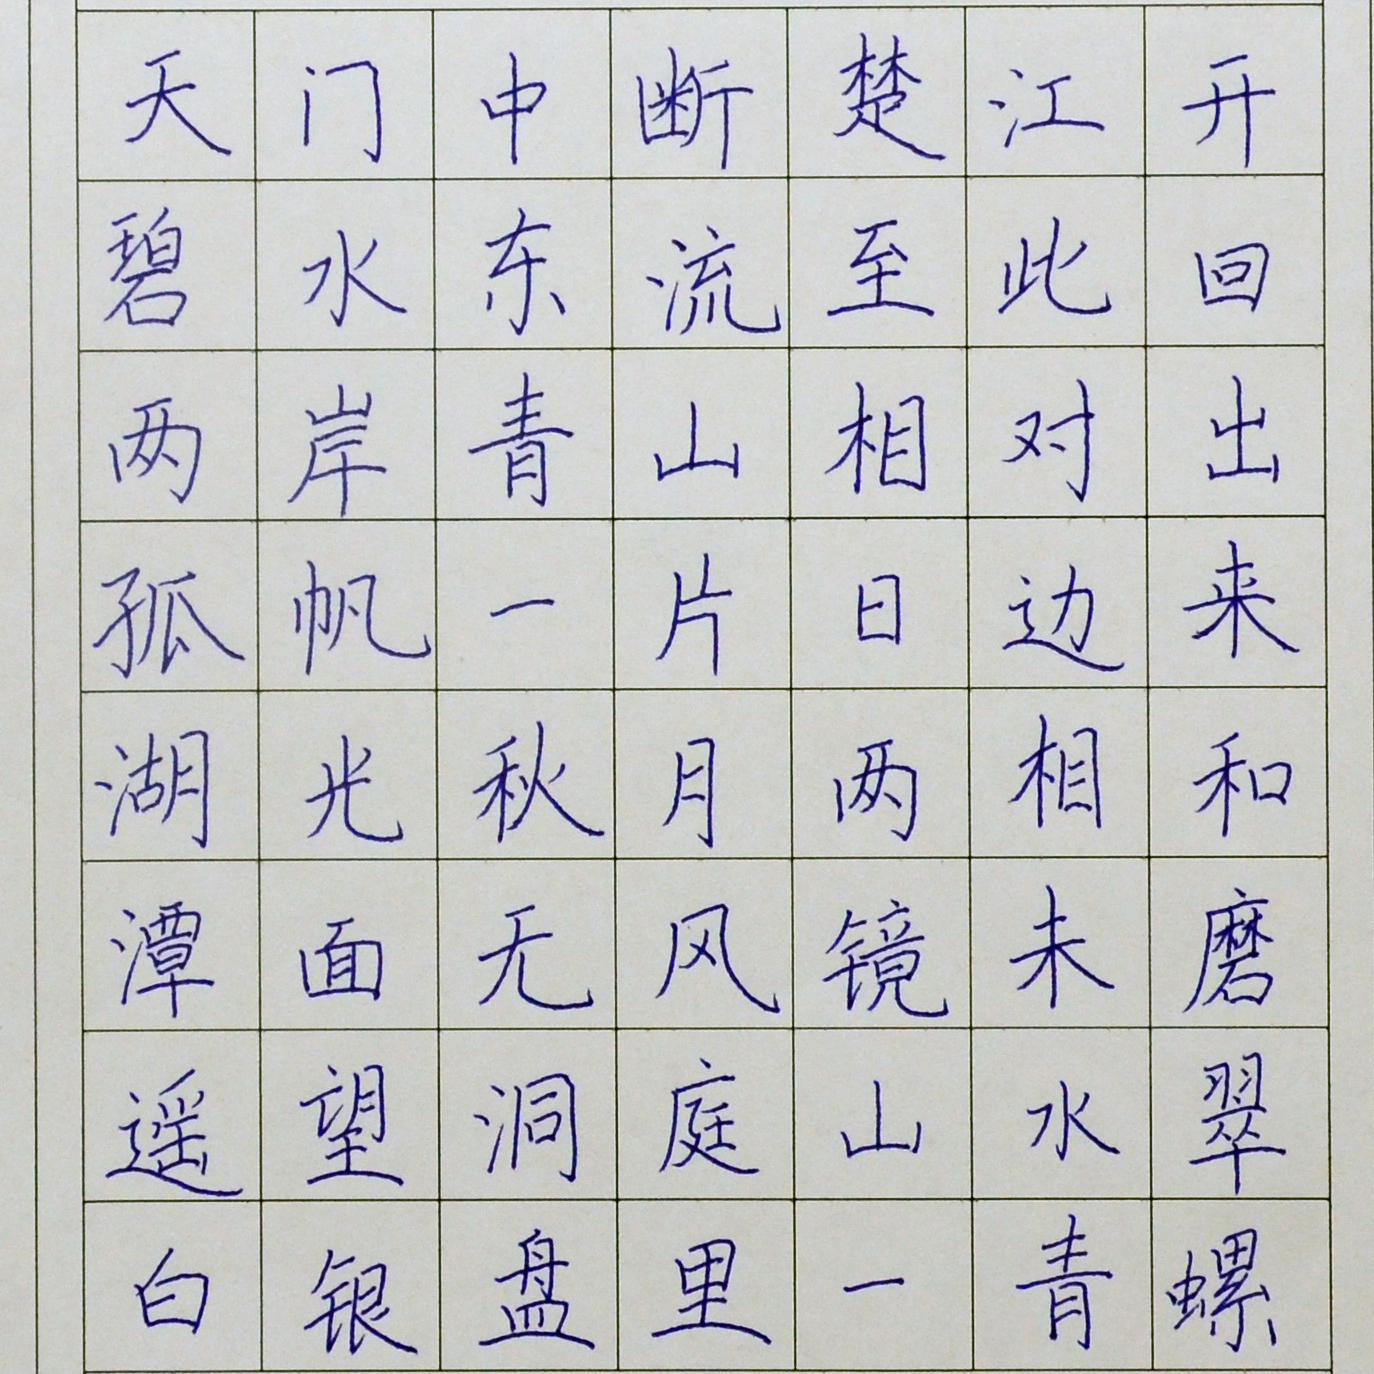 天门中断楚江开
碧水东流至此回
两岸青山相对出
孤帆一片日边来
湖光秋月两相和
潭面无风镜未磨
遥望洞庭山水翠
白银盘里一青螺